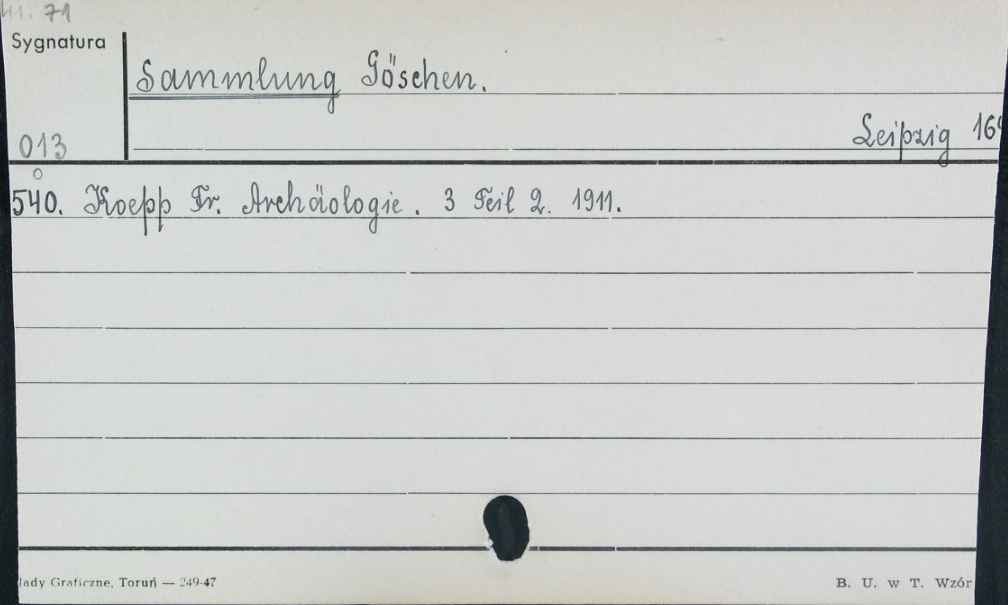 71
Sygnatura
Sammlung Göschen.
Leipzig 16
013
540. Koepp Fr. Archäologie. 3 Teil 2. 1911.
łady Graficzne, Toruń — 249-47
B. U. w T. Wzór